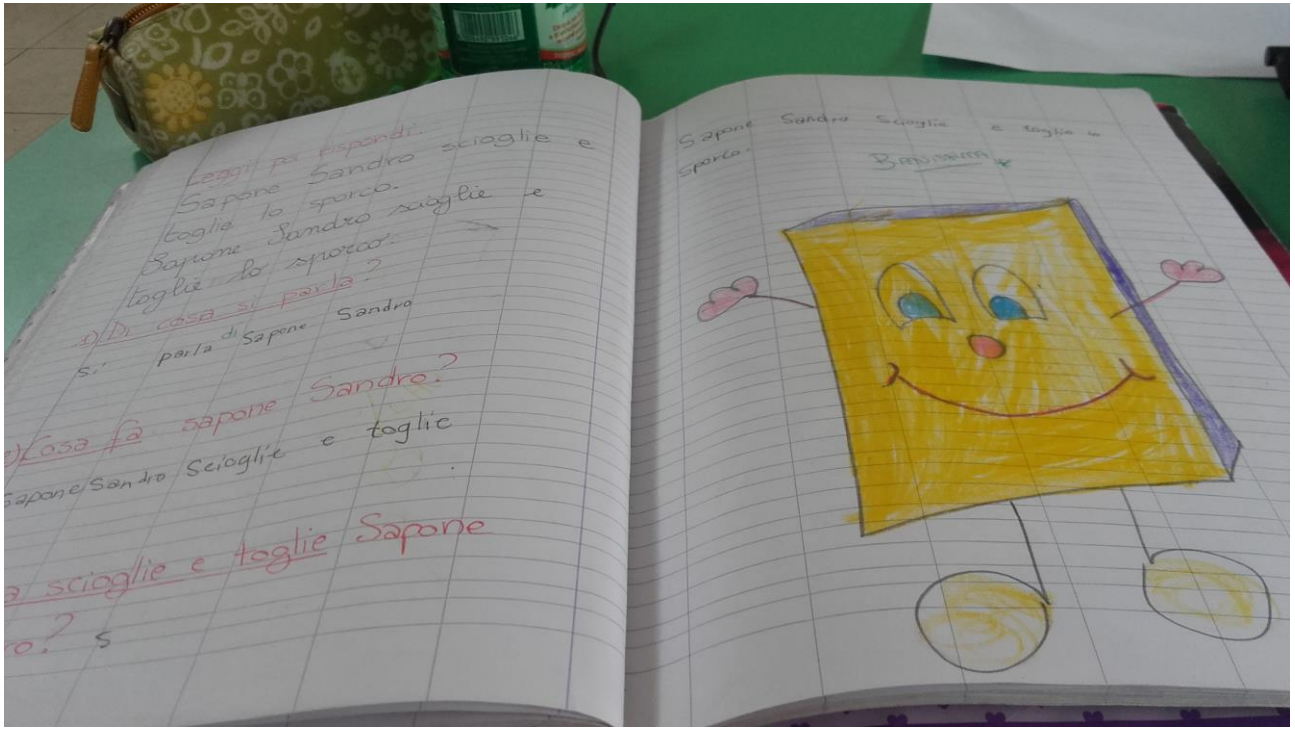 Leggi poi rispondi.
Sapone Sandro scioglie e
toglie lo sporco.
Sapone Sandro scioglie e
toglie lo sporco.
1) Di cosa si parla?
si parla di Sapone Sandro
2) Cosa fa sapone Sandro?
Sapone Sandro Scioglie e toglie
a scioglie e toglie Sapone
ro? S
Sapone Sandro Scioglie e toglie lo
sporco.